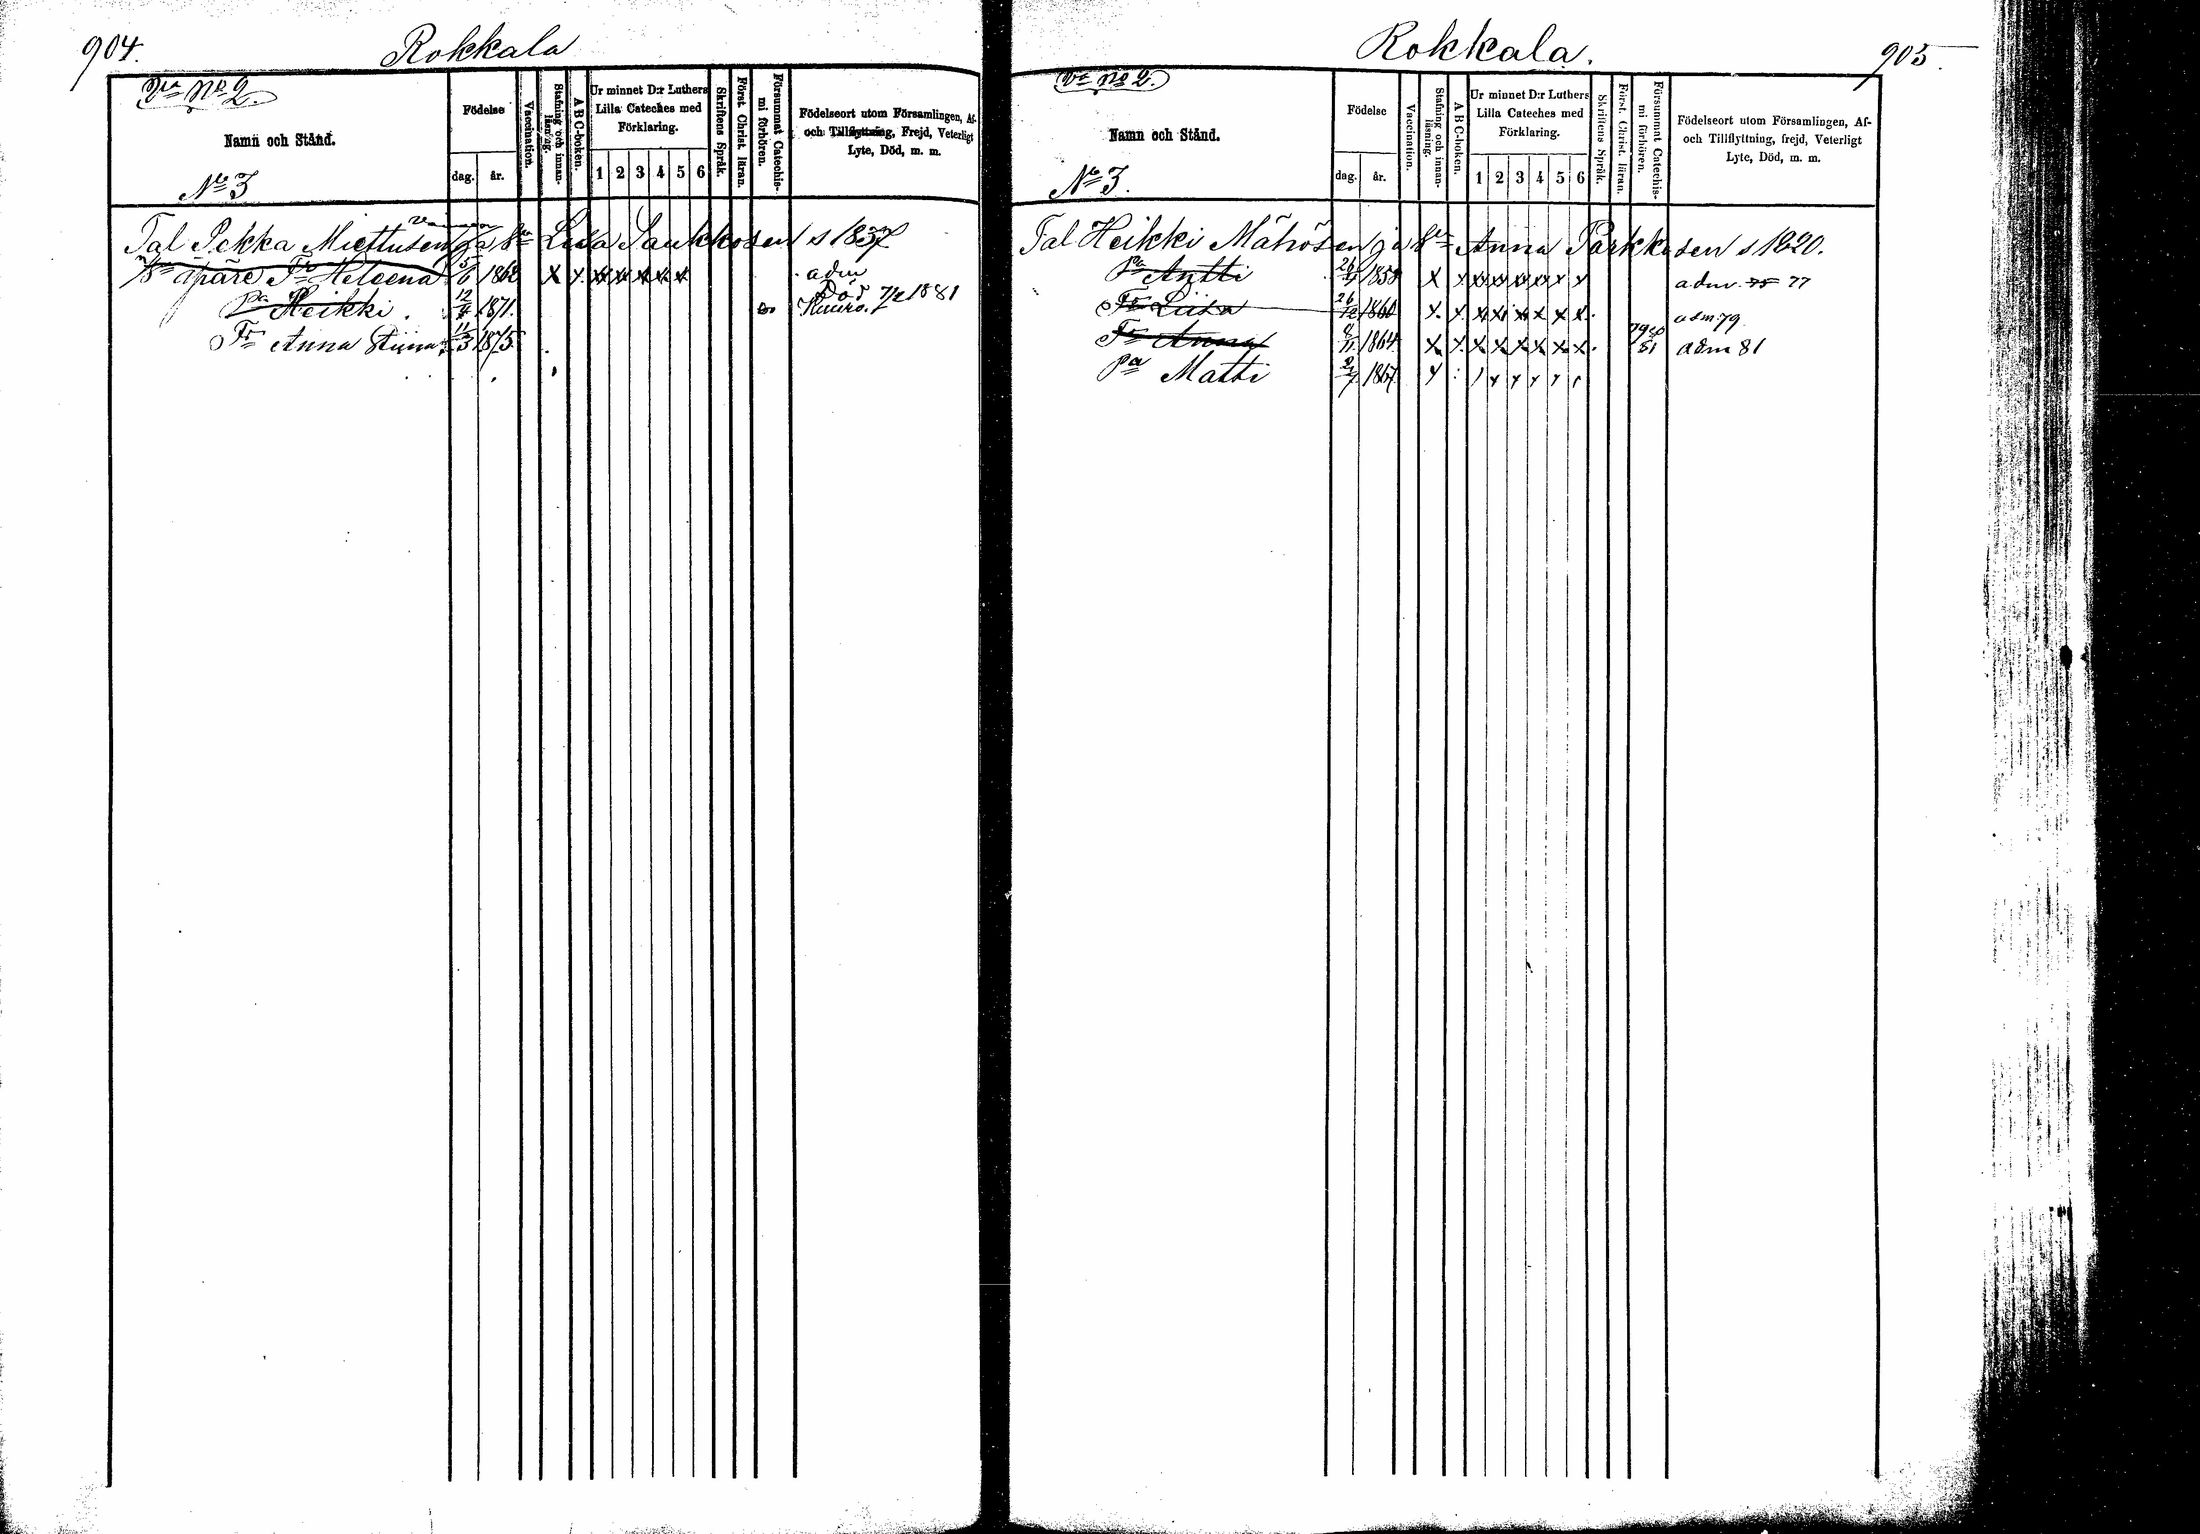 904.
Rokkala
Vn No 2.
Namn och Stånd.
No 3
Födelse
dag.
år.
Vaccination.
Stafning och innanläsning.
A B C-boken.
Ur minnet D:r Luthers
Lilla Cateches med
Förklaring.
1 2 3 4 5 6
Skriftens Språk.
Först Christ. läran.
Försummat Catechismi förhören.
Födelseort utom Församlingen, Af-
och Tillflyttning, Frejd, Veterligt
Lyte, Död, m. m.
Tal Pekka Miettusen ja Liisa Laukkosen s 1837
äpäre Tr Heleena 1862 X X X X X X X adm
Död 7/2 1881
Pa Heikki. 12/4 1871. Kuuro.
Tr Anna Stiina 11/3 1875
Rokkala.
905.
Vn No 2.
Namn och Stånd.
No 3.
Födelse
dag.
år.
Vaccination.
Stafning och innanläsning.
A B C-boken.
Ur minnet D:r Luthers
Lilla Cateches med
Förklaring.
1 2 3 4 5 6
Skriftens Språk.
Först. Christ. läran.
Försummat Catechismi förhören.
Födelseort utom Församlingen, Af-
och Tillflyttning, frejd, Veterligt
Lyte, Död, m. m.
Tal Heikki Mähösen ja Anna Parkkosen s 1820.
Pa Antti 1858 X X X X X X X X adm. 75 77
Tr Liisa 26/12 1860 X X X X X X X X adm 79
Tr Anna 1864 X X X X X X X X 81 adm 81
Pa Matti 2/7 1867